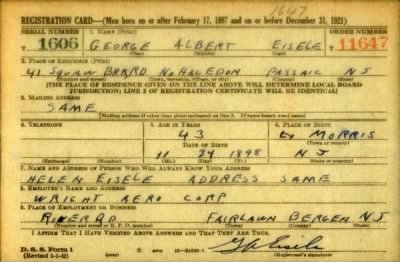 1647
REGISTRATION CARD—(Men born on or after February 17, 1897 and on or before December 31, 1921)
SERIAL NUMBER 1. NAME (Print) ORDER NUMBER
1606 GEORGE ALBERT EISELE 11647
(First) (Middle) (Last)
2. PLACE OF RESIDENCE (Print)
41 SQUAW BRK RD NO HALEDON PASSAIC N J
(Number and street) (Town, township, village, or city) (County) (State)
[THE PLACE OF RESIDENCE GIVEN ON THE LINE ABOVE WILL DETERMINE LOCAL BOARD
JURISDICTION; LINE 2 OF REGISTRATION CERTIFICATE WILL BE IDENTICAL]
3. MAILING ADDRESS
SAME
[Mailing address if other than place indicated on line 2. If same insert word same]
4. TELEPHONE 5. AGE IN YEARS 6. PLACE OF BIRTH
43 MORRIS
DATE OF BIRTH (Town or county)
11 24 1898 N J
(Exchange) (Number) (Mo.) (Day) (Yr.) (State or country)
7. NAME AND ADDRESS OF PERSON WHO WILL ALWAYS KNOW YOUR ADDRESS
HELEN EISELE ADDRESS SAME
8. EMPLOYER'S NAME AND ADDRESS
WRIGHT AERO CORP
9. PLACE OF EMPLOYMENT OR BUSINESS
RIVER RD FAIRLAWN BERGEN N J
(Number and street or R. F. D. number) (Town) (County) (State)
I AFFIRM THAT I HAVE VERIFIED ABOVE ANSWERS AND THAT THEY ARE TRUE.
D. S. S. Form 1
(Revised 1-1-42) (Registrant's signature)